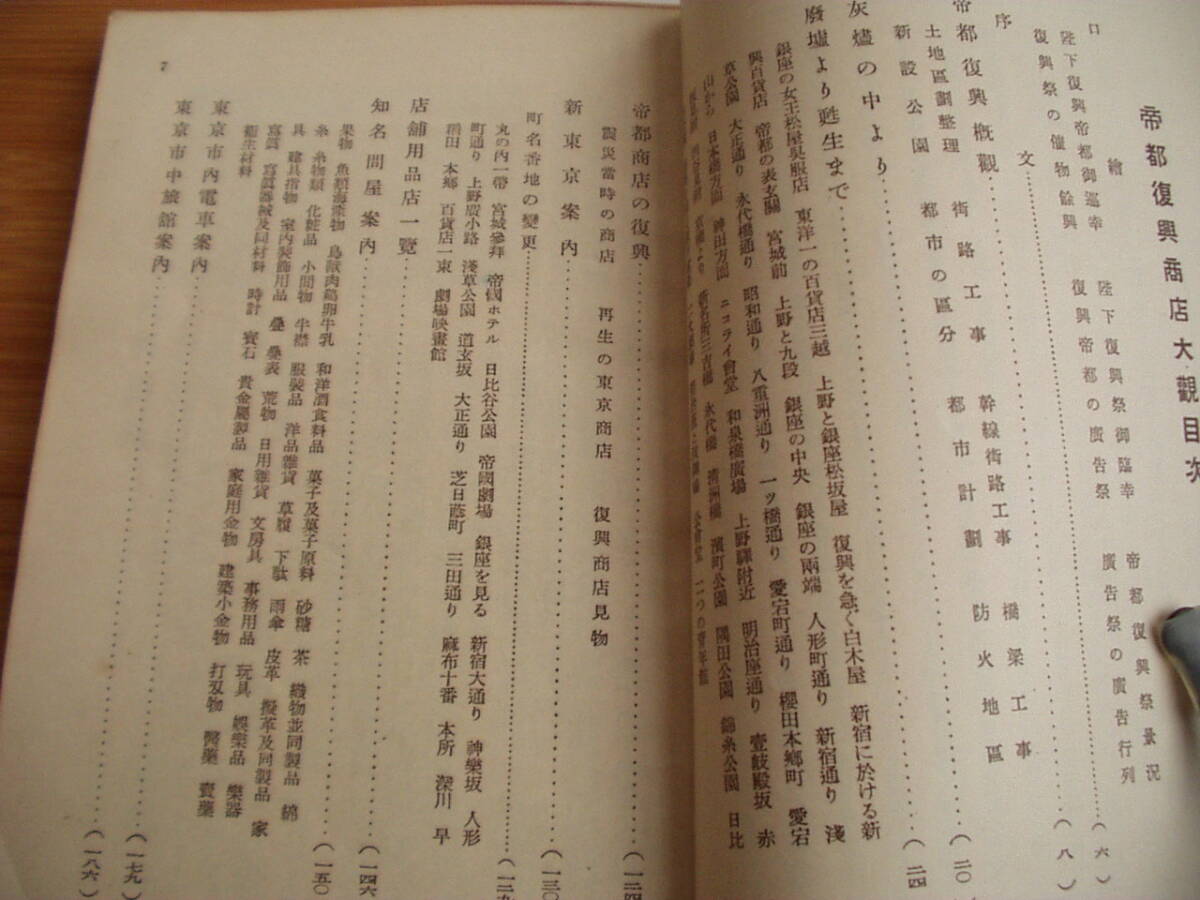 帝都復興商店大觀目次
口繪
陛下復興帝都御巡幸 陛下復興祭御臨幸 帝都復興祭景況
復興祭の催物餘興 復興帝都の廣告祭 廣告祭の廣告行列
序文……(六)
帝都復興槪觀……(八)
土地區劃整理 街路工事 幹線街路工事 橋梁工事
新設公園 都市の區分 都市計劃 防火地區
灰燼の中より……(二〇
廢墟より甦生まで……(二四
銀座の女王松屋吳服店 東洋一の百貨店三越 上野と銀座松坂屋 復興を急ぐ白木屋 新宿に於ける新
興百貨店 帝都の表玄關 宮城前 上野と九段 銀座の中央 銀座の兩端 人形町通り 新宿通り 淺
草公園 大正通り 永代橋通り 昭和通り 八重洲通り 一ツ橋通り 愛宕町通り 櫻田本鄕町 愛宕
山から 日本橋方面 神田方面 ニコライ會堂 和泉橋廣場 上野驛附近 明治座通り 壹岐殿坂 赤
新名所三吉橋 永代橋 清洲橋 濱町公園 隅田公園 錦糸公園 日比
公會堂 二つの靑年館
帝都商店の復興……(一二四
震災當時の商店 再生の東京商店 復興商店見物
新東京案內……(一三〇
町名番地の變更……(一二九
丸の內一帶 宮城參拜 帝國ホテル 日比谷公園 帝國劇場 銀座を見る 新宿大通り 神樂坂 人形
町通り 上野廣小路 淺草公園 道玄坂 大正通り 芝日蔭町 三田通り 麻布十番 本所 深川 早
稻田 本鄕 百貨店一束 劇場映畫館
店舖用品店一覽……(一四六
知名問屋案內……(一五〇
果物 魚類海產物 鳥獸肉鷄卵牛乳 和洋酒食料品 菓子及菓子原料 砂糖 茶 織物並同製品 綿
糸 糸物類 化粧品 小間物 半襟 服裝品 洋品雜貨 草履 下駄 雨傘 皮革 擬革及同製品 家
具 建具指物 室內裝飾用品 疊 疊表 荒物 日用雜貨 文房具 事務用品 玩具 娛樂品 樂器
寫眞 寫眞器械及同材料 時計 寶石 貴金屬製品 家庭用金物 建築小金物 打刃物 醫藥 賣藥
衞生材料
東京市內電車案內……(一七九)
東京市中旅館案內……(一八六)
7